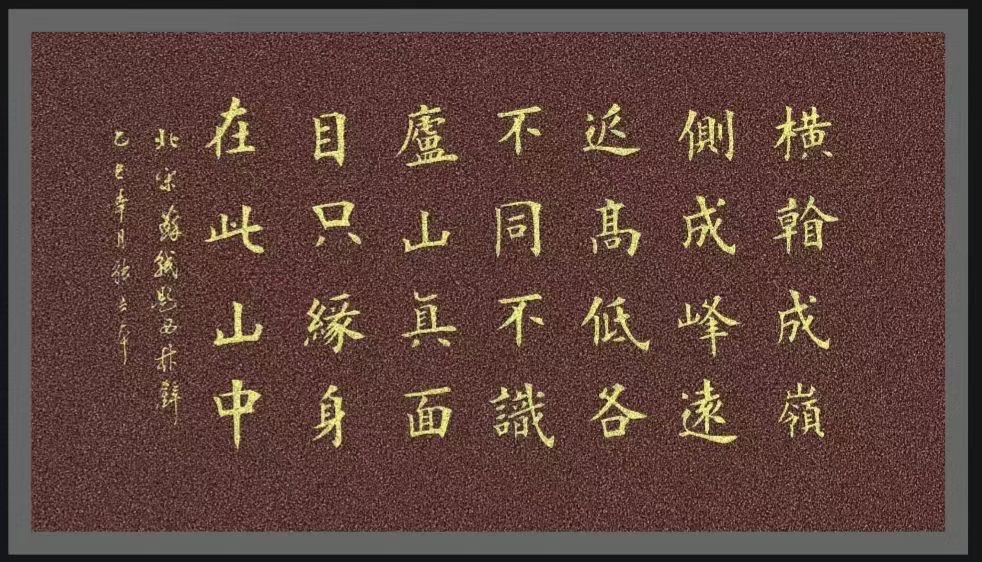 橫看成嶺
側成峰遠
近高低各
不同不識
廬山真面
目只緣身
在此山中
北宋蘇軾題西林壁
乙巳年月